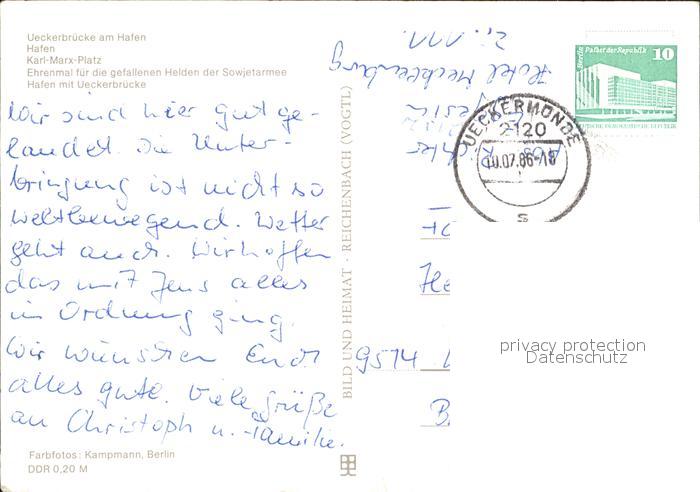 Ueckerbrücke am Hafen
Hafen
Karl-Marx-Platz
Ehrenmal für die gefallenen Helden der Sowjetarmee
Hafen mit Ueckerbrücke
Wir sind hier gut ge-
landet. Die Unter-
bringung ist nicht so
weltbewegend. Wetter
geht auch. Wir hoffen
das mit Jens alles
in Ordnung ging.
Wir wünschen Euch
alles gute. Viele Grüße
an Christoph u. Familie.
Farbfotos: Kampmann, Berlin
DDR 0,20 M
BILD UND HEIMAT · REICHENBACH (VOGTL)
Hotel Mecklenburg
Zi. 111.
Berlin Palast der Republik 10
DEUTSCHE DEMOKRATISCHE REPUBLIK
UECKERMÜNDE
2120
10.07.86-18
s
He
9514
B
privacy protection
Datenschutz